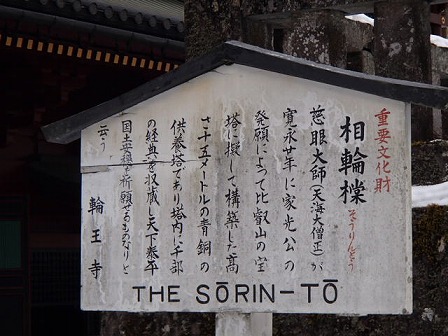 重要文化財
相輪橖
そうりんとう
慈眼大師(天海大僧正)が
寛永廿年に家光公の
発願によって比叡山の宝
塔に擬して構築した高
さ十五メートルの青銅の
供養塔であり塔内に千部
の経典を収蔵し天下泰平
国土安穏を祈願せるものなりと
云う
輪王寺
THE SŌRIN-TŌ